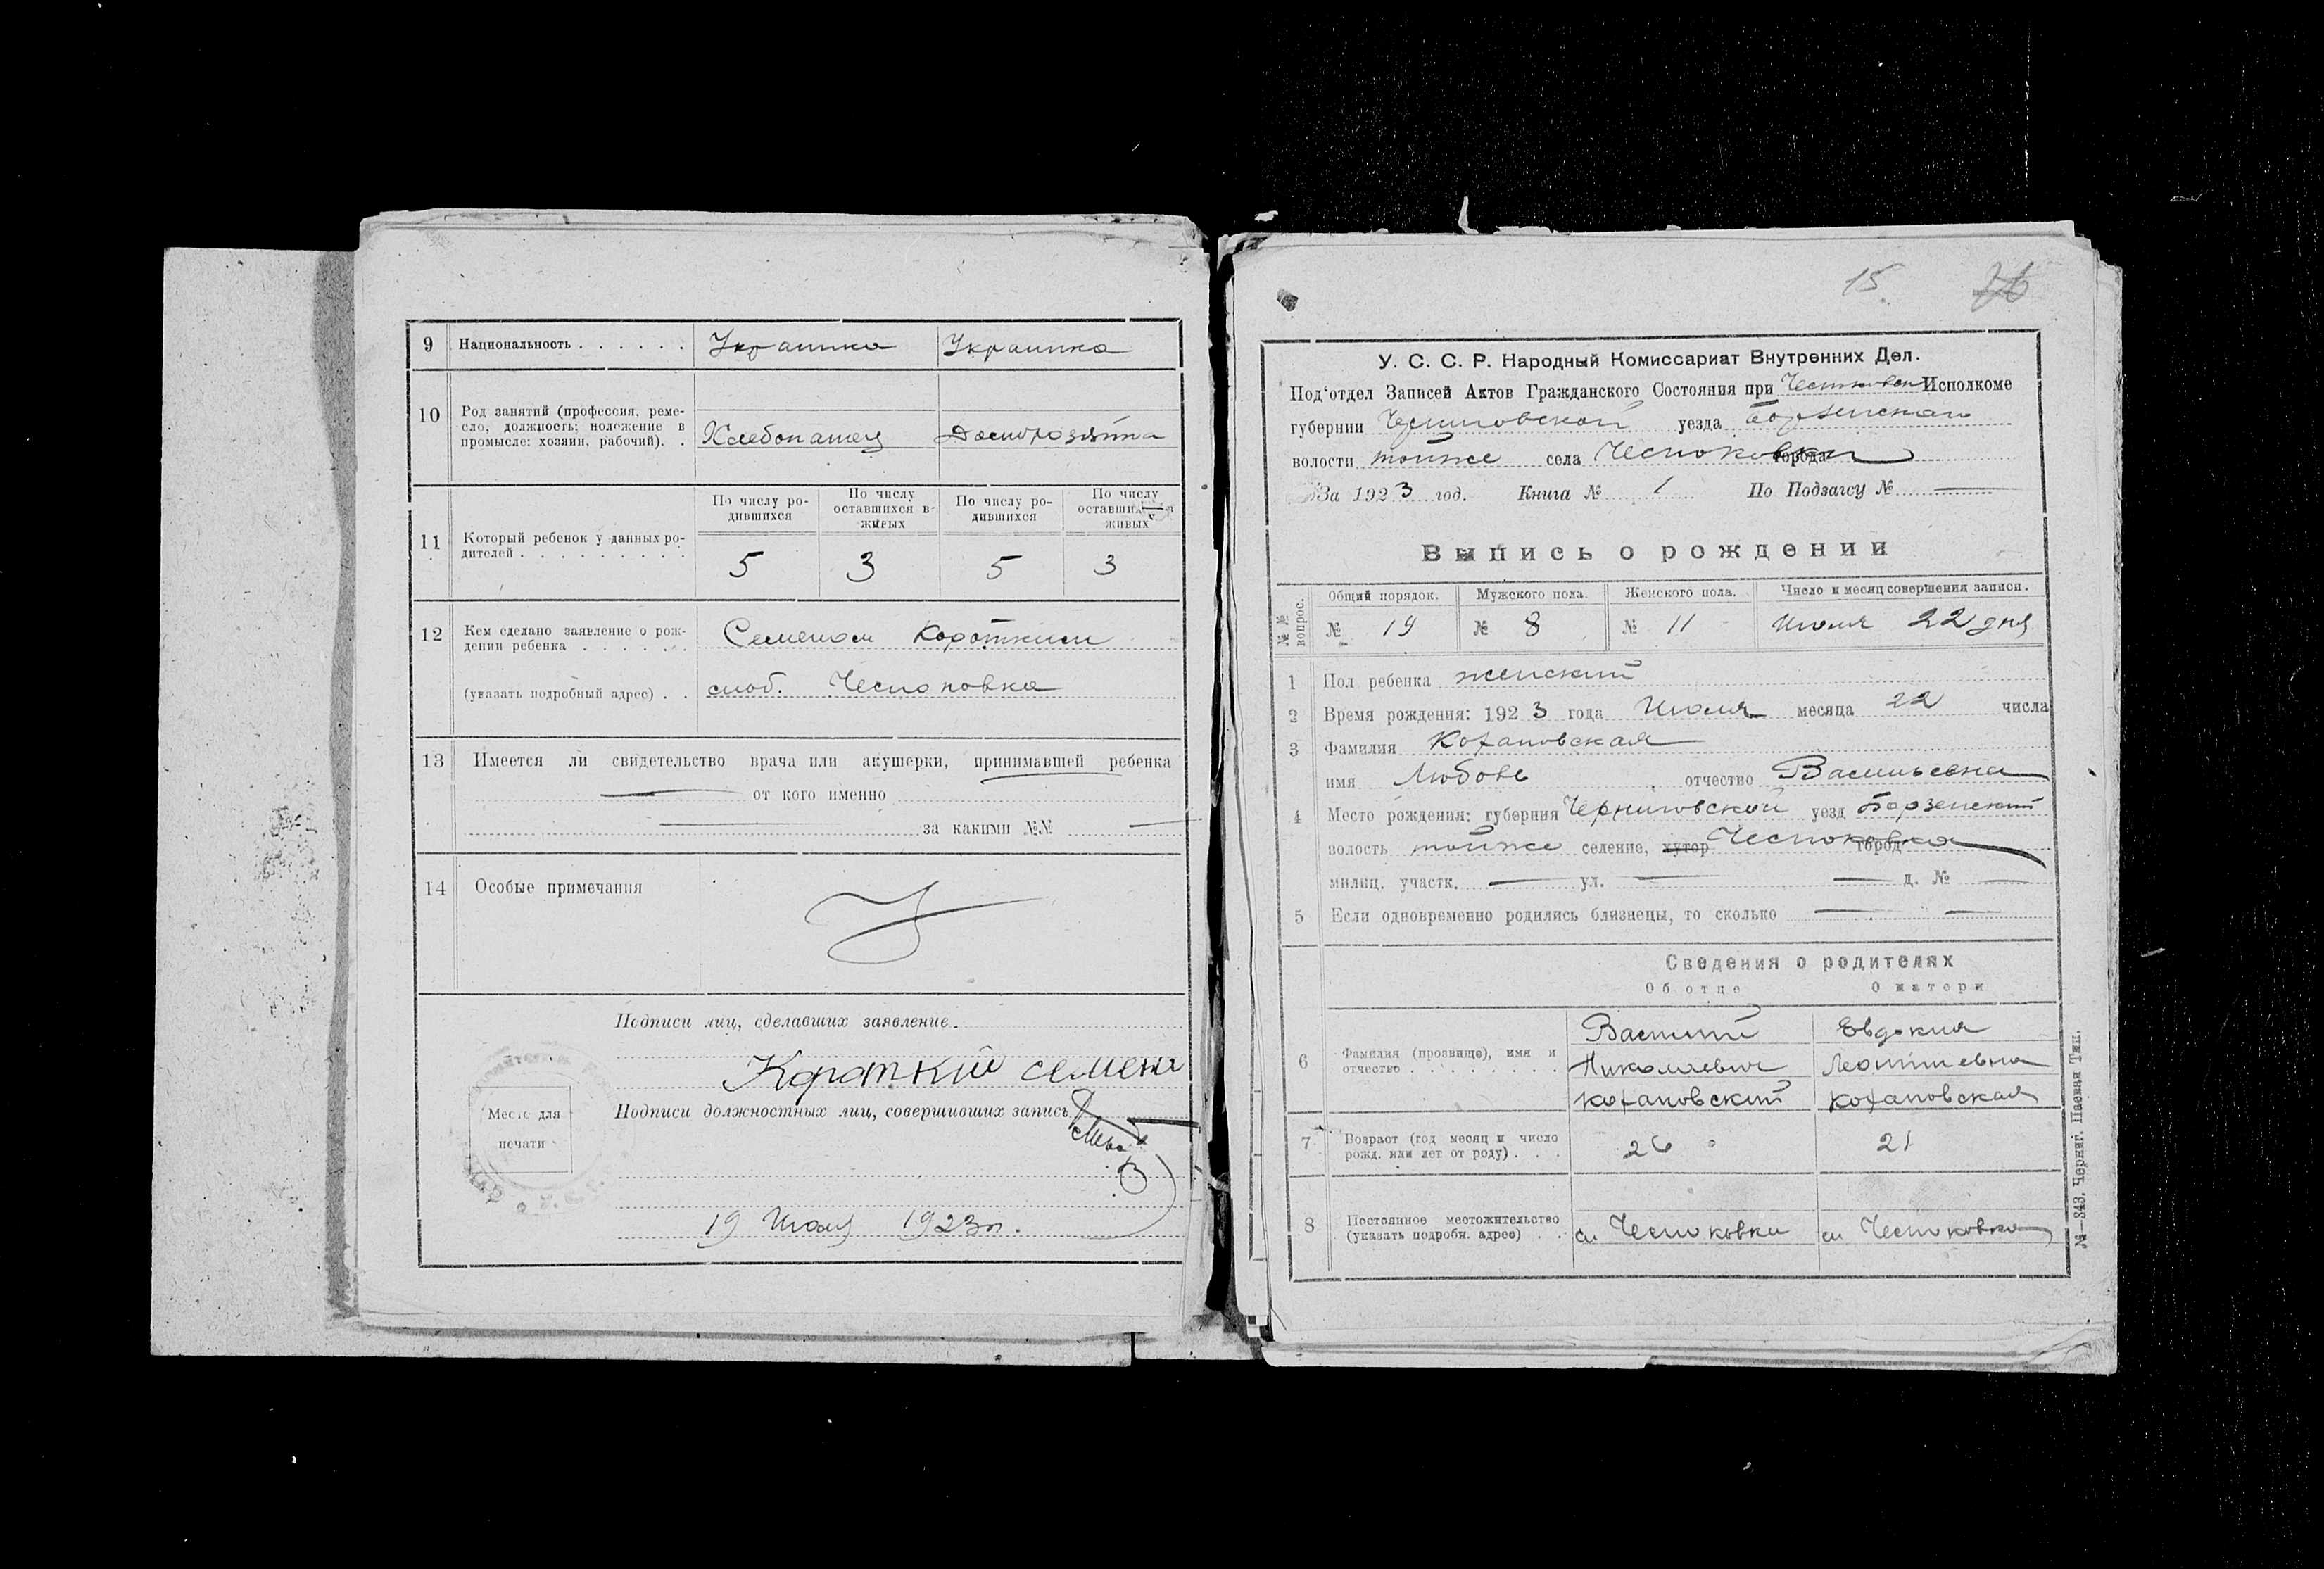 9 Национальность . . . . . . Украинка Украинка
10 Род занятий (профессия, реме-
сло, должность; положение в
промысле: хозяин, рабочий). . Хлебопашец Домохозяйка
По числу ро-
дившихся
По числу
оставшихся в
живых
По числу ро-
дившихся
По числу
оставшихся в
живых
11 Который ребенок у данных ро-
дителей . . . . . . . . . 5 3 5 3
12 Кем сделано заявление о рож-
дении ребенка . . . . . . Семеном Коротким
(указать подробный адрес) . . слоб. Чесноковка
13 Имеется ли свидетельство врача или акушерки, принимавшей ребенка
от кого именно
за какими №№
14 Особые примечания
Подписи лиц, сделавших заявление
Короткий Семена
Подписи должностных лиц, совершивших запись
Место для
печати
19 Июля 1923 г.
15
У. С. С. Р. Народный Комиссариат Внутренних Дел.
Под'отдел Записей Актов Гражданского Состояния при Исполкоме
губернии Черниговской уезда Борзенского
волости тойже села Чесноковки города
За 1923 год. Книга № 1 По Подзагсу №
Выпись о рождении
№№ вопрос.
Общий порядок. Мужского пола. Женского пола. Число и месяц совершения записи.
№ 19 № 8 № 11 Июля 22 дня
1 Пол ребенка женский
2 Время рождения: 1923 года Июля месяца 22 числа
3 Фамилия Кохановская
имя Любовь отчество Васильевна
4 Место рождения: губерния Черниговской уезд Борзенский
волость тойже селение, хутор Чесноковка город
милиц. участк. ул. д. №
5 Если одновременно родились близнецы, то сколько
Сведения о родителях
Об отце О матери
6 Фамилия (прозвище), имя и
отчество . . . . . . . . .
Василий Евдокия
Николаевич Леонтиевна
Кохановский Кохановская
7 Возраст (год месяц и число
рожд. или лет от роду) . . . 26 21
8 Постоянное местожительство
(указать подробн. адрес) . . сл Чесноковки сл Чесноковки
№—343. Черниг. Паевая Тип.